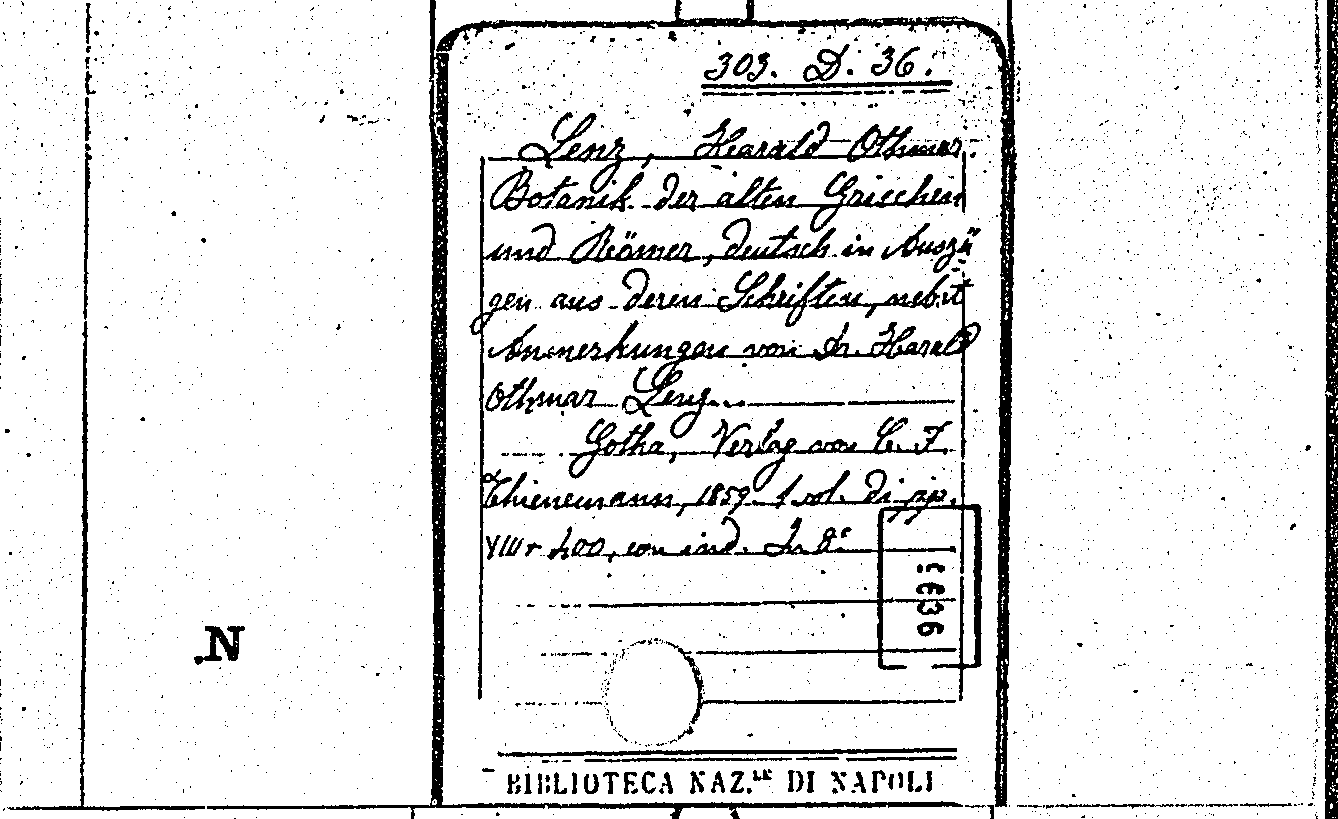 303. D. 36.
Lenz, Harald Othmar.
Botanik der alten Griechen
und Römer, deutsch in Auszü
gen aus deren Schriften, nebst
Anmerkungen von Dr. Harald
Othmar Lenz.
Gotha, Verlag von C. F.
Thienemann, 1859. 1 vol. di pp.
VIII + 400, con ind. In 8°
.N
BIBLIOTECA NAZ.LE DI NAPOLI